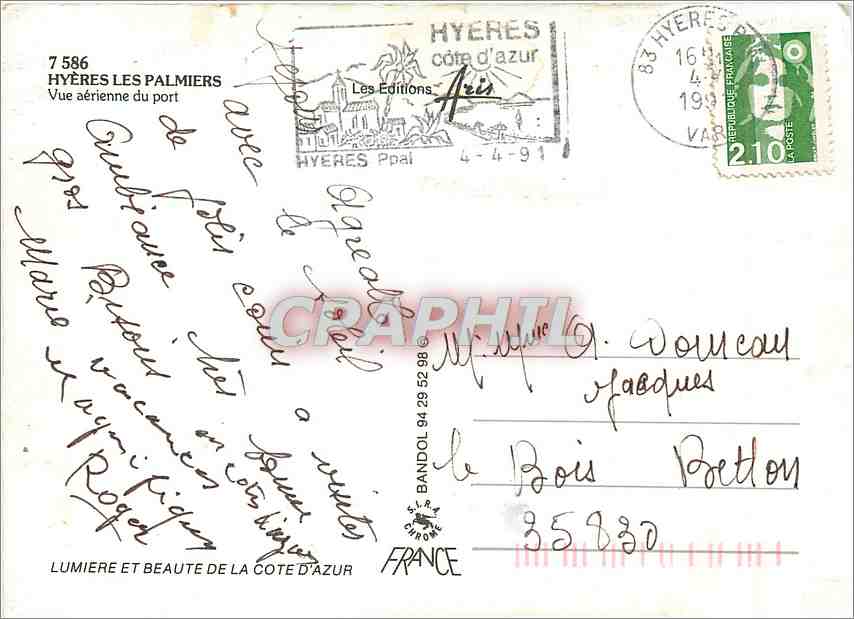 7 586
HYÈRES LES PALMIERS
Vue aérienne du port
HYERES
côte d'azur
Les Editions Aris
HYERES Ppal 4-4-91
83 HYERES
16H
4-4
199
VAR
REPUBLIQUE FRANÇAISE
2.10
LA POSTE
agréable
avec le soleil
de jolis coins a visités
Ambiance très bonne
gros Bisous en cote d'azur
vacances magnifiques
Marie Roger
CRAPHIL
M. Mme A.
Jacques
le Bois Betton
35830
BANDOL 94 29 52 98 ©
S.I.R.A.
CHROME
FRANCE
LUMIERE ET BEAUTE DE LA COTE D'AZUR